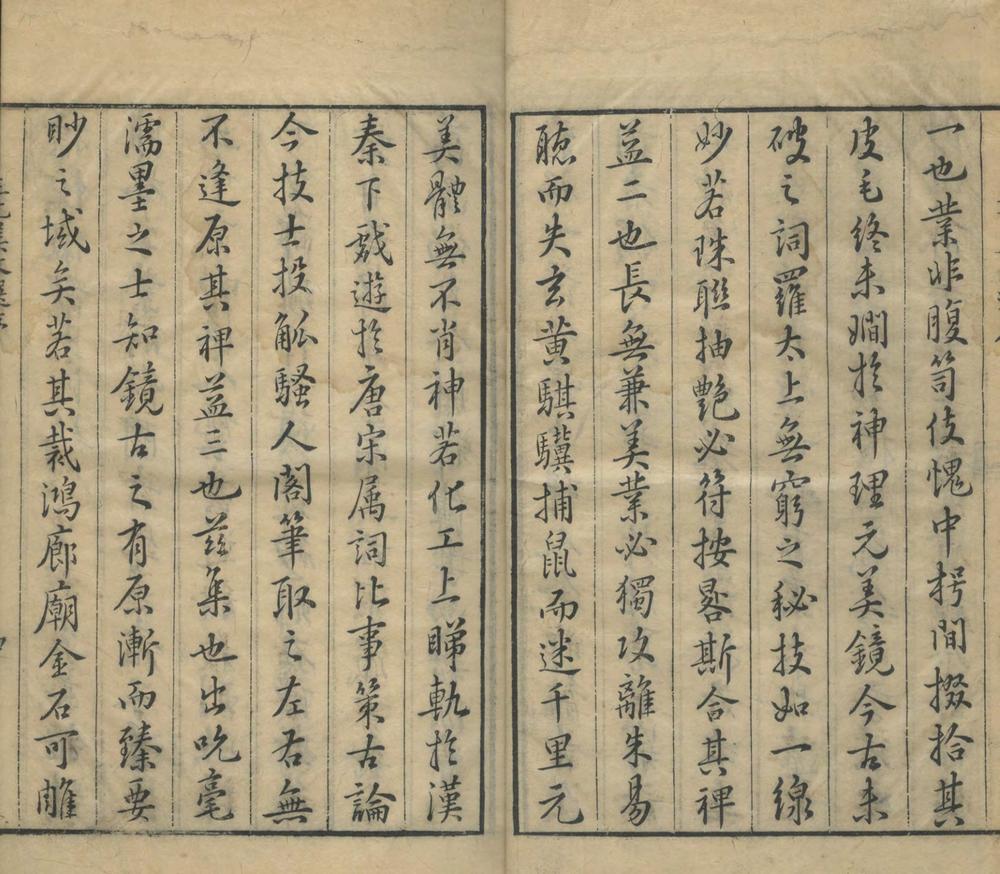 一也業非腹笥伎愧中枵間掇拾其
皮毛終未嫺於神理元美鏡今古未
破之詞羅太上無窮之秘技如一線
妙若珠聯抽艷必符按晷斯合其裨
益二也長無兼美業必獨攻離朱易
聼而失玄黄騏驥捕鼠而迷千里元
美體無不肖神若化工上睇軌於漢
秦下戲遊於唐宋属詞比事策古論
今技士投觚騷人閣筆取之左右無
不逢原其裨益三也兹集也出吮毫
濡墨之士知鏡古之有原漸而臻要
眇之域矣若其裁鴻廊廟金石可雕